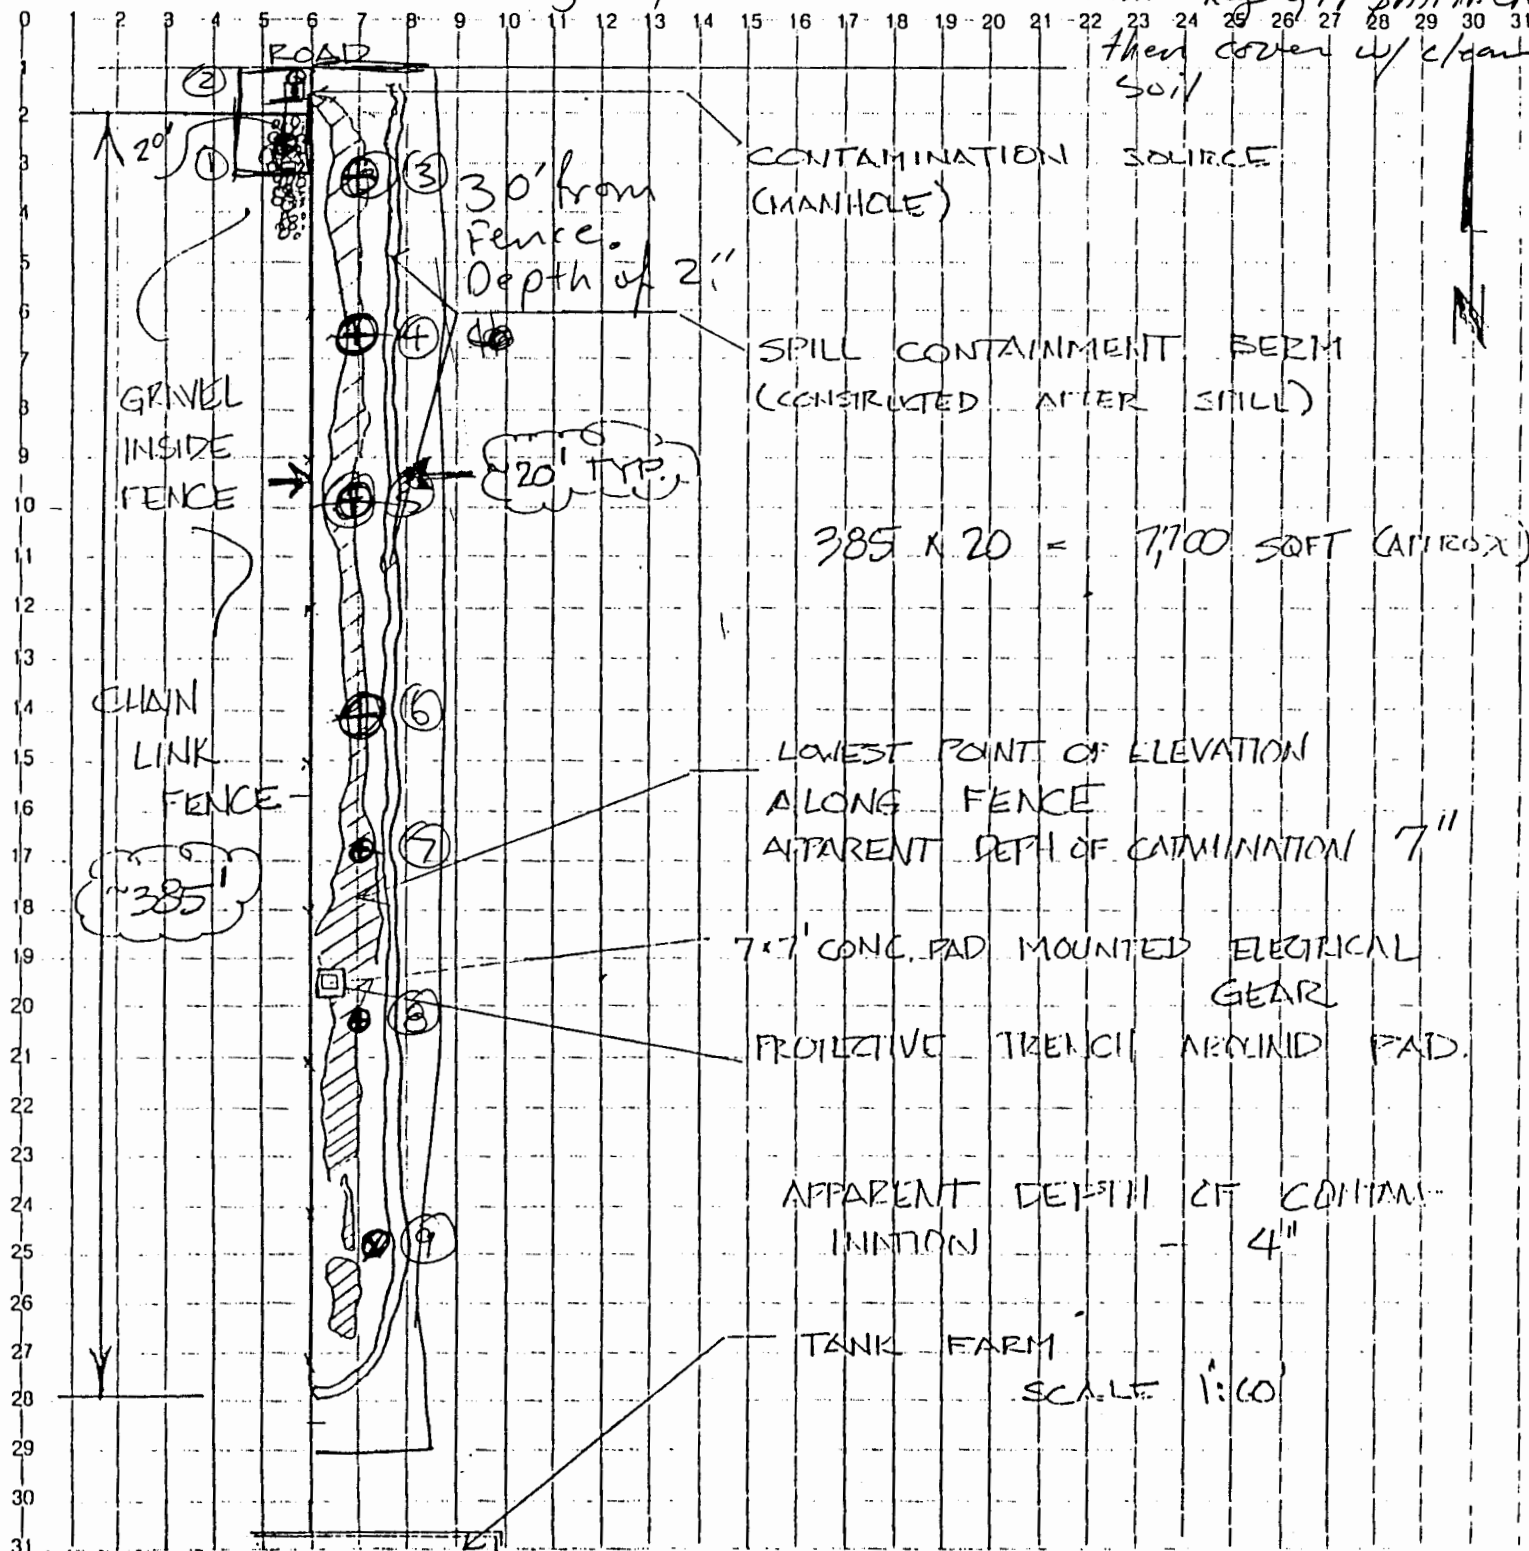 0 1 2 3 4 5 6 7 8 9 10 11 12 13 14 15 16 17 18 19 20 21 22 23 24 25 26 27 28 29 30 31
then cover w/ clean
soil
ROAD
②
20'
①
③
30' from
Fence.
Depth of 2"
CONTAMINATION SOURCE
(MANHOLE)
N
④
SPILL CONTAINMENT BERM
(CONSTRUCTED AFTER SPILL)
GRAVEL
INSIDE
FENCE
~20' TYP.
5
385 X 20 = 7,700 SQFT (APPROX)
CHAIN
LINK
FENCE
⑥
LOWEST POINT OF ELEVATION
ALONG FENCE
APPARENT DEPTH OF CONTAMINATION 7"
⑦
~385'
7x7' CONC. PAD MOUNTED ELECTRICAL
GEAR
⑧
PROTECTIVE TRENCH AROUND PAD.
APPARENT DEPTH OF CONTAM-
INATION - 4"
⑨
TANK FARM
SCALE
1
2
3
4
5
6
7
8
9
10
11
12
13
14
15
16
17
18
19
20
21
22
23
24
25
26
27
28
29
30
31